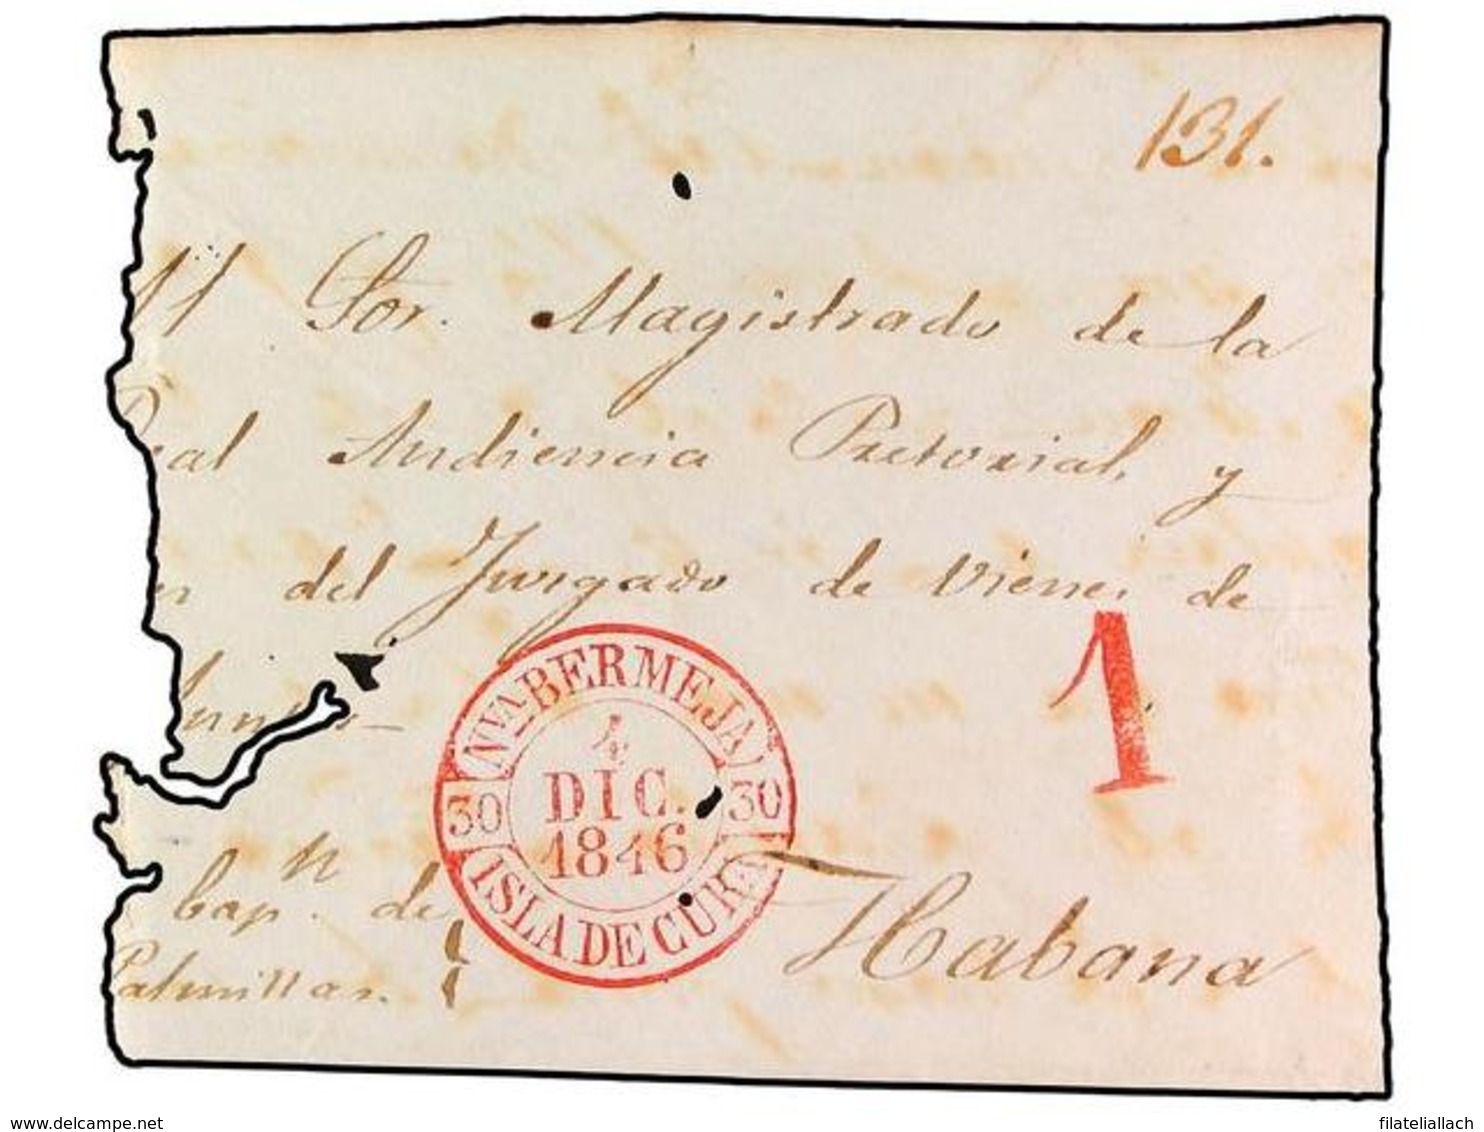 131.
Sor. Magistrado de la
Real Audiencia Pretorial, y
del Jurgado de vienes de
1
NVA BERMEJA
4
DIC.
1846
30 30
ISLA DE CUBA
Capn. de
Palmillas.
Habana
www.delcampe.net
filateliallach